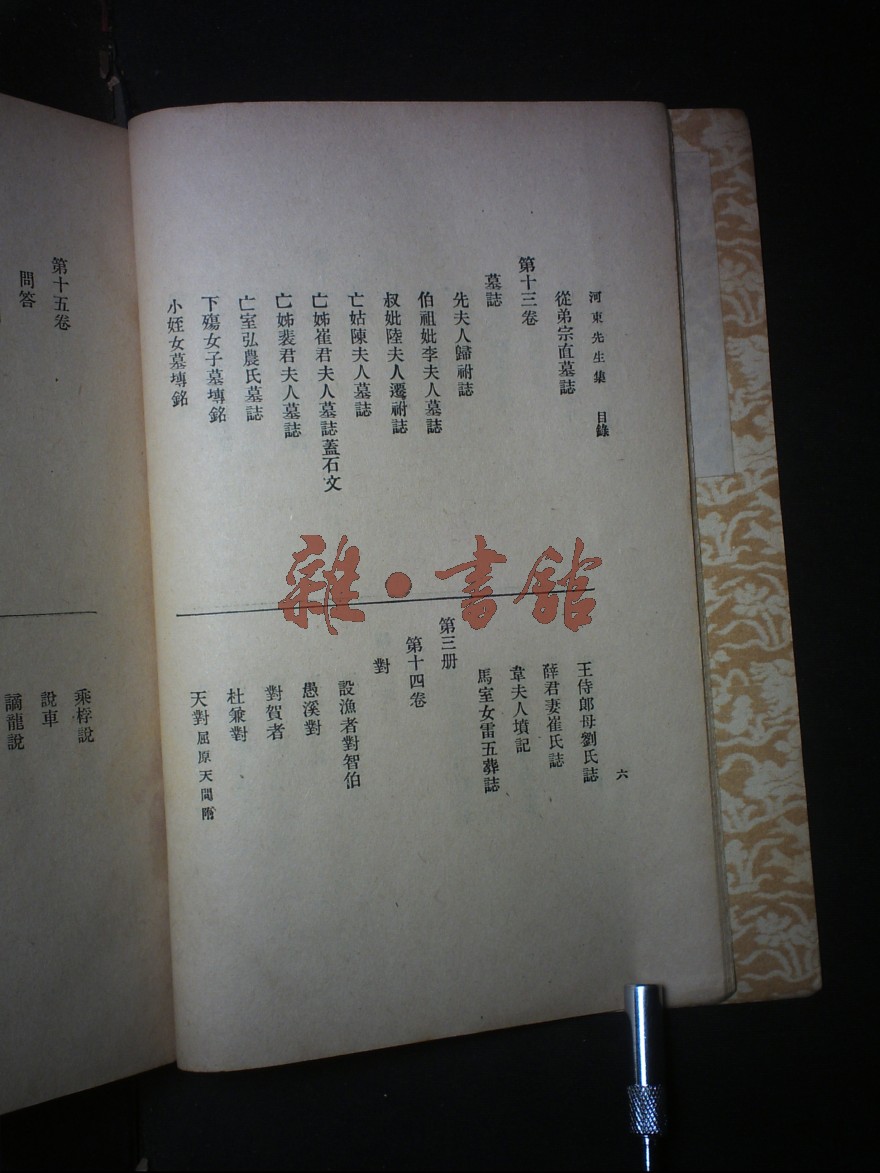 河東先生集 目錄
從弟宗直墓誌
第十三卷
墓誌
先夫人歸祔誌
伯祖妣李夫人墓誌
叔妣陸夫人遷祔誌
亡姑陳夫人墓誌
亡姊崔君夫人墓誌蓋石文
亡姊裴君夫人墓誌
亡室弘農氏墓誌
下殤女子墓塼銘
小姪女墓塼銘
六
王侍郎母劉氏誌
薛君妻崔氏誌
韋夫人墳記
馬室女雷五葬誌
第三册
第十四卷
對
設漁者對智伯
愚溪對
對賀者
杜兼對
天對屈原天問附
第十五卷
問答
乘桴說
說車
謫龍說
雜·書館